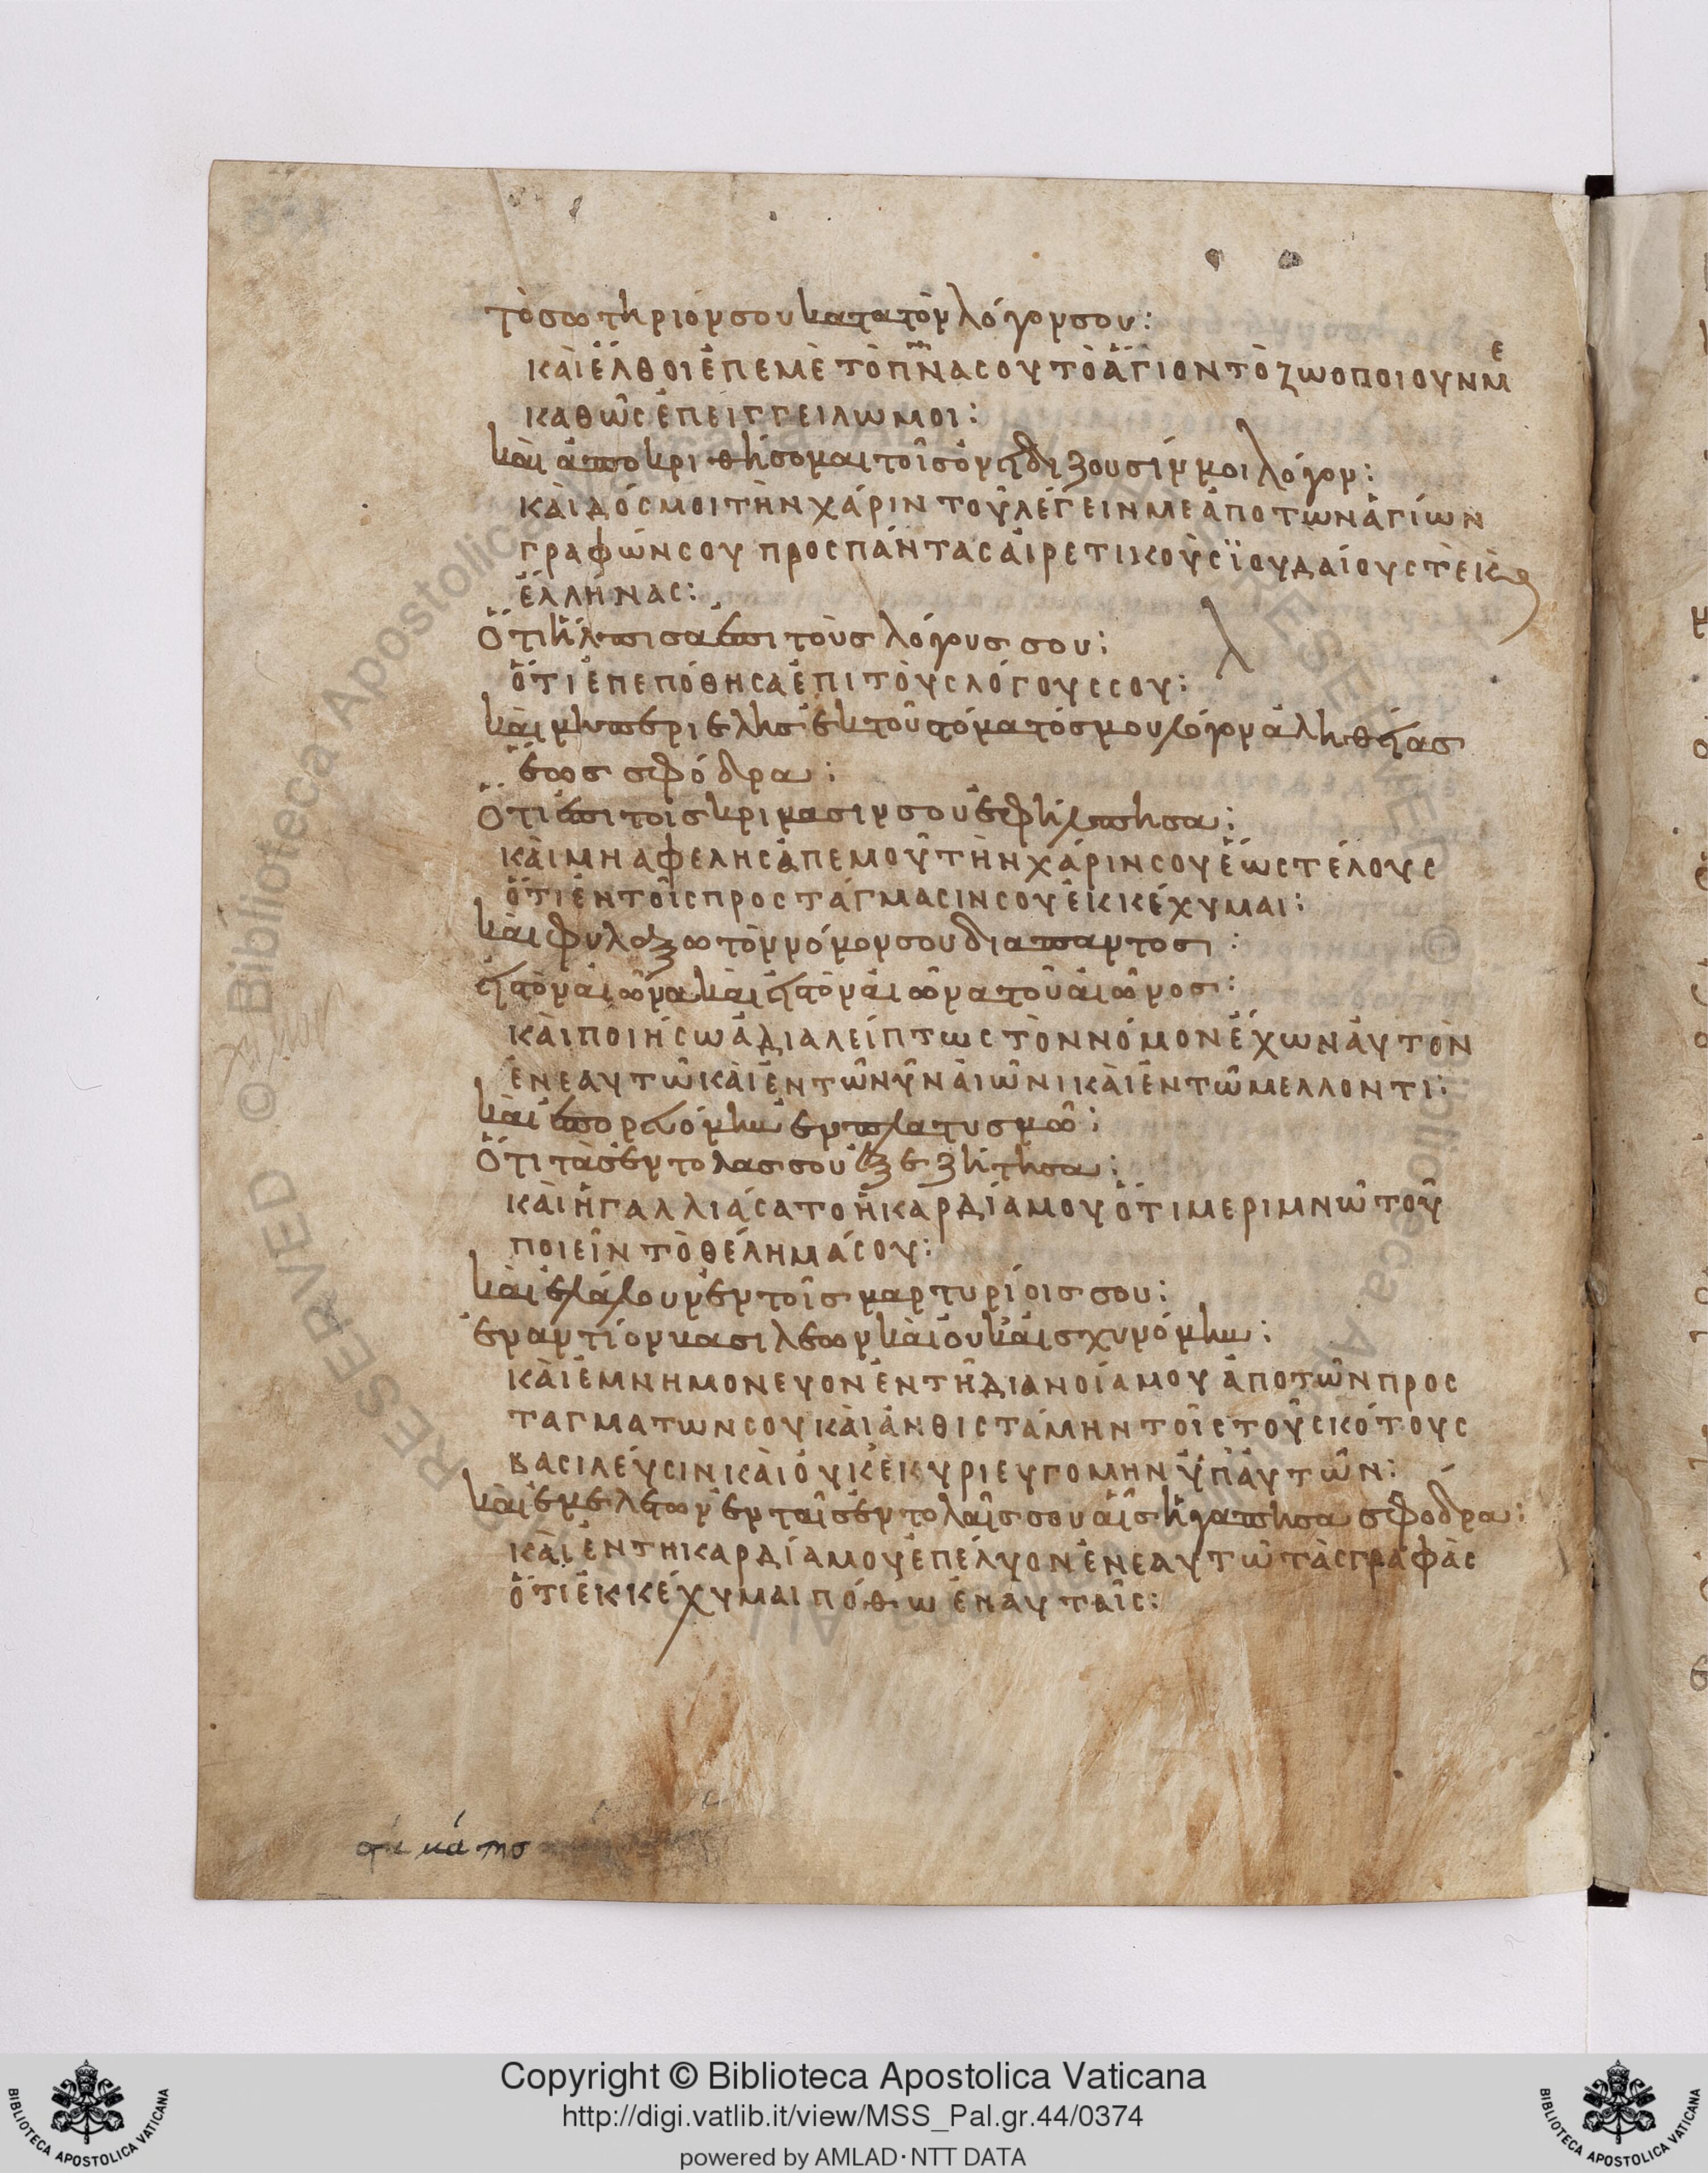 τὸ σωτήριόν σου κατα τὸν λόγον σου:
ΚΑῚ ἜΛΘΟΙ ἘΠΕΜῈ ΤῸ ΠΝΑ ΣΟΥ ΤῸ ἍΓΙΟΝ ΤῸ ΖΩΟΠΟΙΟΥΝ ΜΕ
ΚΑΘῺΣ ἘΠΕΙΓΓΕΙΛΩ ΜΟΙ:
καὶ ἀποκριθήσομαι τοῖς ὀνειδιζουσίν μοι λόγον:
ΚΑῚ ΔΌΣ ΜΟΙ ΤῊΝ ΧΆΡΙΝ ΤΟΥ͂ ΛΈΓΕΙΝ ΜΕ ἈΠΟ ΤΩΝ ἉΓΊΩΝ
ΓΡΑΦΏΝ ΣΟΥ ΠΡΟΣ ΠΆΝΤΑΣ ΑἹΡΕΤΙΚΟῪΣ ΪΟΥΔΑΊΟΥΣ ΤῈ Κ̀
ἝΛΛΗΝΑΣ:
Ὅτι ἤλπισα ἐπι τοὺς λόγους σου:
ὍΤΙ ἘΠΕΠΌΘΗΣΑ ἘΠΙ ΤῸΥΣ ΛΌΓΟΥΣ ΣΟΥ:
καὶ μὴ περιέλης ἐκ τοῦ στόματός μου λόγον ἀληθείας
ἕως σφόδρα:
Ὅτι ἐπι τοῖς κριμασιν σου ἐπήλπησα:
ΚΑῚ ΜΗ ΑΦΕΛΗΣ ἈΠΕΜΟΥ͂ ΤῊΝ ΧΆΡΙΝ ΣΟΥ ἝΩΣ ΤΈΛΟΥΣ
ὍΤΙ ἘΝ ΤΟΙ͂Σ ΠΡΟΣΤΆΓΜΑΣΙΝ ΣΟΥ ἘΚΚΈΧΥΜΑΙ:
καὶ φυλάξω τὸν νόμον σου διαπαντος:
εἰς τὸν αἰῶνα καὶ εἰς τὸν αἰῶνα τοῦ αἰῶνος:
ΚΑῚ ΠΟΙΉΣΩ ἈΔΙΑΛΕΊΠΤΩΣ ΤῸΝ ΝΌΜΟΝ ἜΧΩΝ ἈΥΤῸΝ
ἘΝ ΕΑΥΤΩ͂ ΚΑῚ ἘΝ ΤΩ͂ ΝΥ͂Ν ἈΙΩ͂ΝΙ ΚΑῚ ἘΝ ΤΩ͂ ΜΕΛΛΟΝΤΙ:
καὶ ἐπορευόμην ἐν πλατυσμῶ:
Ὅτι τὰς ἐντολας σου ἐξεζήτησα:
ΚΑῚ ἨΓΑΛΛΙΆΣΑΤΟ Ἡ ΚΑΡΔΊΑ ΜΟΥ ὍΤΙ ΜΕΡΙΜΝΩ͂ ΤΟΥ͂
ΠΟΙΕΙ͂Ν ΤῸ ΘΈΛΗΜΆ ΣΟΥ:
καὶ ἐλάλουν ἐν τοῖς μαρτυρίοις σου:
ἐναντίον βασιλέων καὶ ουκ ἀισχυνόμην:
ΚΑῚ ἘΜΝΗΜΟΝΕΥΟΝ ἘΝ ΤΗ͂ ΔΙΑΝΟΊΑ ΜΟΥ ἈΠΟ ΤΩ͂Ν ΠΡΟΣ
ΤΑΓΜΑΤΩΝ ΣΟΥ ΚΑῚ ἈΝΘΙΣΤΆΜΗΝ ΤΟΙ͂Σ ΤΟΥ͂ ΣΚΌΤΟΥΣ
ΒΑΣΙΛΕΥΣΙΝ ΚΑῚ ὈΥΚ ἘΚΥΡΙΕΥΓΟΜΗΝ ὙΠ ἈΥΤΩ͂Ν:
καὶ ἐμελέτων ἐν ταῖς ἐντολαῖς σου αἷς ἠγαπησα σφοδρα:
ΚΑῚ ἘΝ ΤΗ ΚΑΡΔΊΑ ΜΟΥ ἘΠΈΛΥΟΝ ἘΝ ΕΑΥΤΩ͂ ΤᾺΣ ΓΡΑΦᾺΣ
ὍΤΙ ἘΚΚΈΧΥΜΑΙ ΠΌΘΩ ἘΝ ΑΥΤΑΙ͂Σ:
RESERVED © Biblioteca Apostolica Vaticana. ALL RIGHTS RESERVED
Copyright © Biblioteca Apostolica Vaticana
http://digi.vatlib.it/view/MSS_Pal.gr.44/0374
powered by AMLAD·NTT DATA
BIBLIOTECA APOSTOLICA VATICANA
BIBLIOTECA APOSTOLICA VATICANA